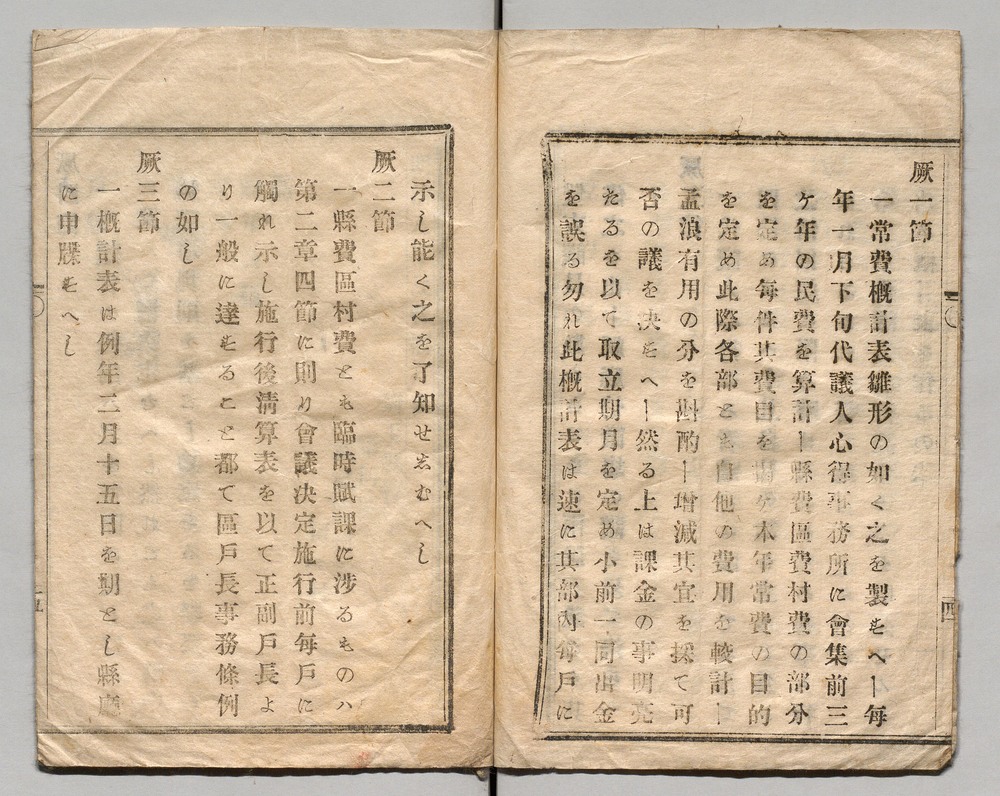 厥一節
一常費概計表雛形の如く之を製すへし每
年一月下旬代議人心得事務所に會集前三
ケ年の民費を算計し縣費區費村費の部分
を定め每件其費目を揭ケ本年常費の目的
を定め此際各部とも自他の費用を較計し
孟浪有用の分を斟酌し增減其宜を採て可
否の議を决すへし然る上は課金の事明亮
たるを以て取立期月を定め小前一同出金
を誤る勿れ此概計表は速に其部內每戶に
四
示し能く之を了知せしむへし
厥二節
一縣費區村費とも臨時賦課に涉るものハ
第二章四節に則り會議决定施行前每戶に
觸れ示し施行後淸算表を以て正副戶長よ
り一般に達すること都て區戶長事務條例
の如し
厥三節
一概計表は例年二月十五日を期とし縣廳
に申牒すへし
五